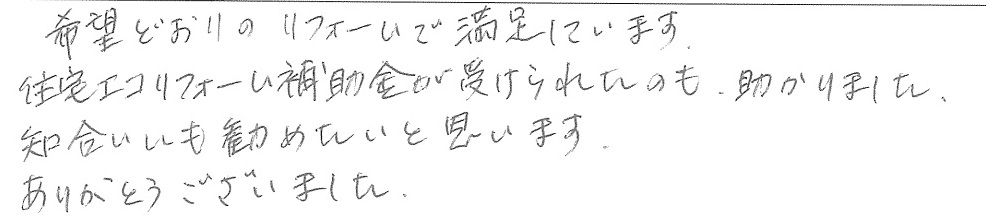 希望どおりのリフォームで満足しています.
住宅エコリフォーム補助金が受けられたのも、助かりました、
知合いにも勧めたいと思います.
ありがとうございました.